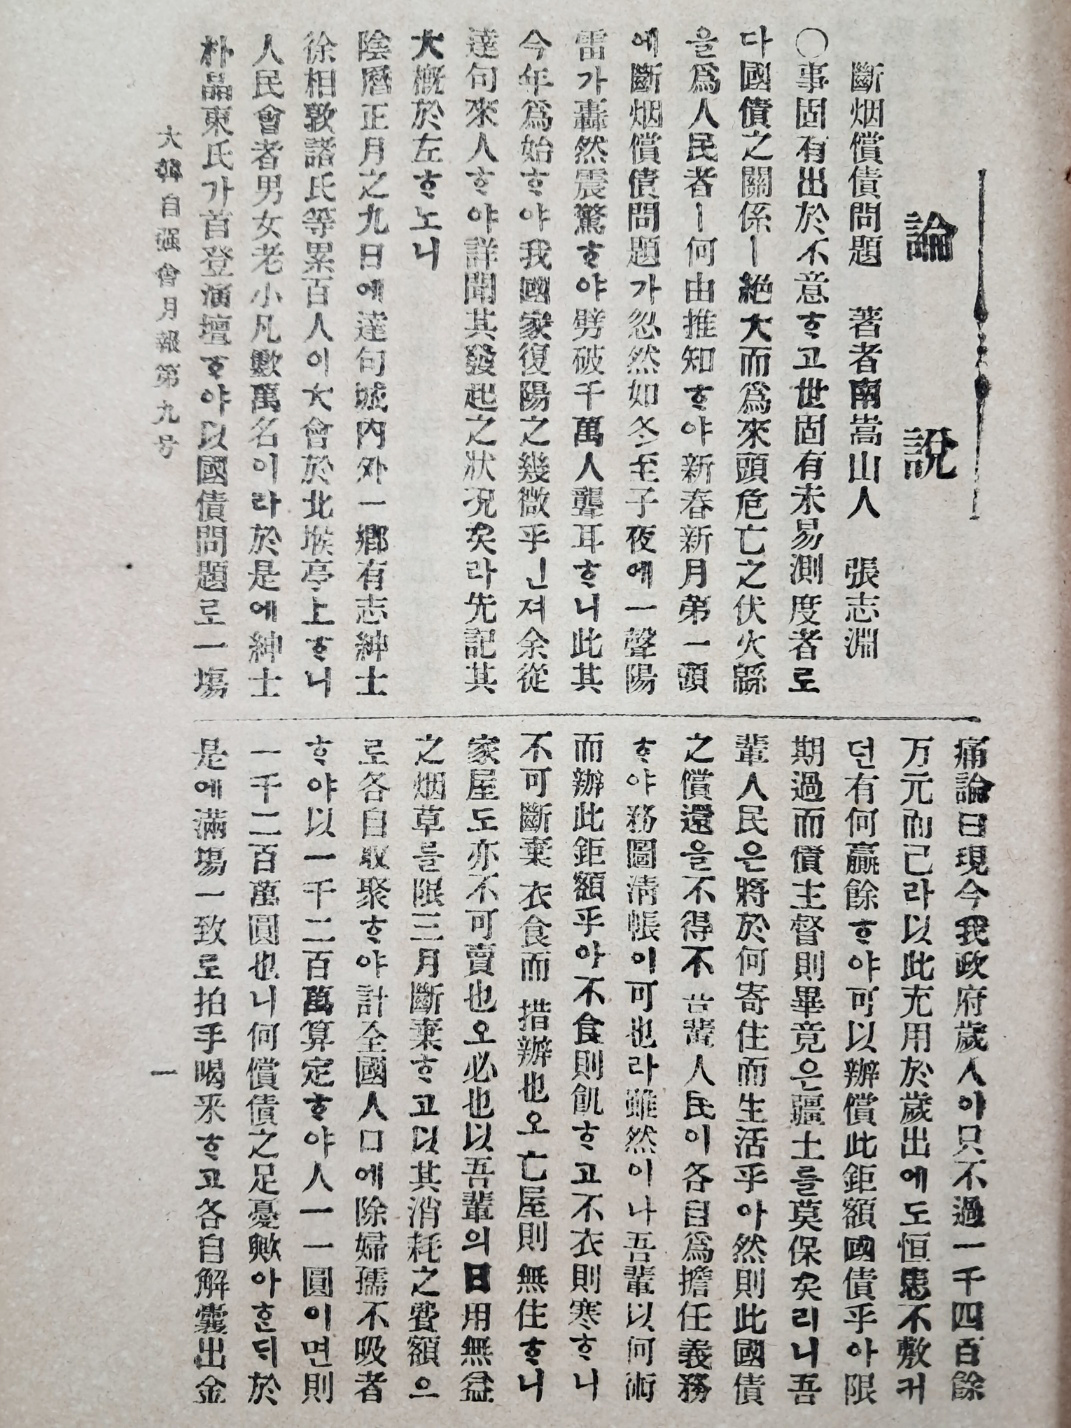 論說
斷烟償債問題 著者南嵩山人 張志淵
〇事固有出於不意ᄒᆞ고世固有未易測度者로
다國債之關係ㅣ絕大而爲來頭危亡之伏火緜
을爲人民者ㅣ何由推知ᄒᆞ야新春新月第一頭
에斷烟償債問題가忽然如冬至子夜에一聲陽
雷가轟然震驚ᄒᆞ야劈破千萬人聾耳ᄒᆞ니此其
今年爲始ᄒᆞ야我國家復陽之幾微乎인져余從
達句來人ᄒᆞ야詳聞其發起之狀況矣라先記其
大槪於左ᄒᆞ노니
陰曆正月之九日에達句城內外一鄕有志紳士
徐相敦諸氏等累百人이大會於北堠亭上ᄒᆞ니
人民會者男女老小凡數萬名이라於是에紳士
朴晶東氏가首登演壇ᄒᆞ야以國債問題로一塲
痛論曰現今我政府歲入이只不過一千四百餘
万元而已라以此充用於歲出에도恒患不敷커
던有何贏餘ᄒᆞ야可以辦償此鉅額國債乎아限
期過而債主督則畢竟은疆土를莫保矣리니吾
輩人民은將於何寄住而生活乎아然則此國債
之償還을不得不 吾輩人民이各自爲擔任義務
ᄒᆞ야務圖淸帳이可也라雖然이나吾輩以何術
而辦此鉅額乎아不食則飢ᄒᆞ고不衣則寒ᄒᆞ니
不可斷棄衣食而 措辦也오亡屋則無住ᄒᆞ니
家屋도亦不可賣也오必也以吾輩의日用無益
之烟草를限三月斷棄ᄒᆞ고以其消耗之費額으
로各自收聚ᄒᆞ야計全國人口에除婦孺不吸者
ᄒᆞ야以一千二百萬算定ᄒᆞ야人一一圓이면則
一千二百萬圓也니何償債之足憂歟아ᄒᆞᆫᄃᆡ於
是에滿塲一致로拍手喝采ᄒᆞ고各自解囊出金
大韓自强會月報第九号
一